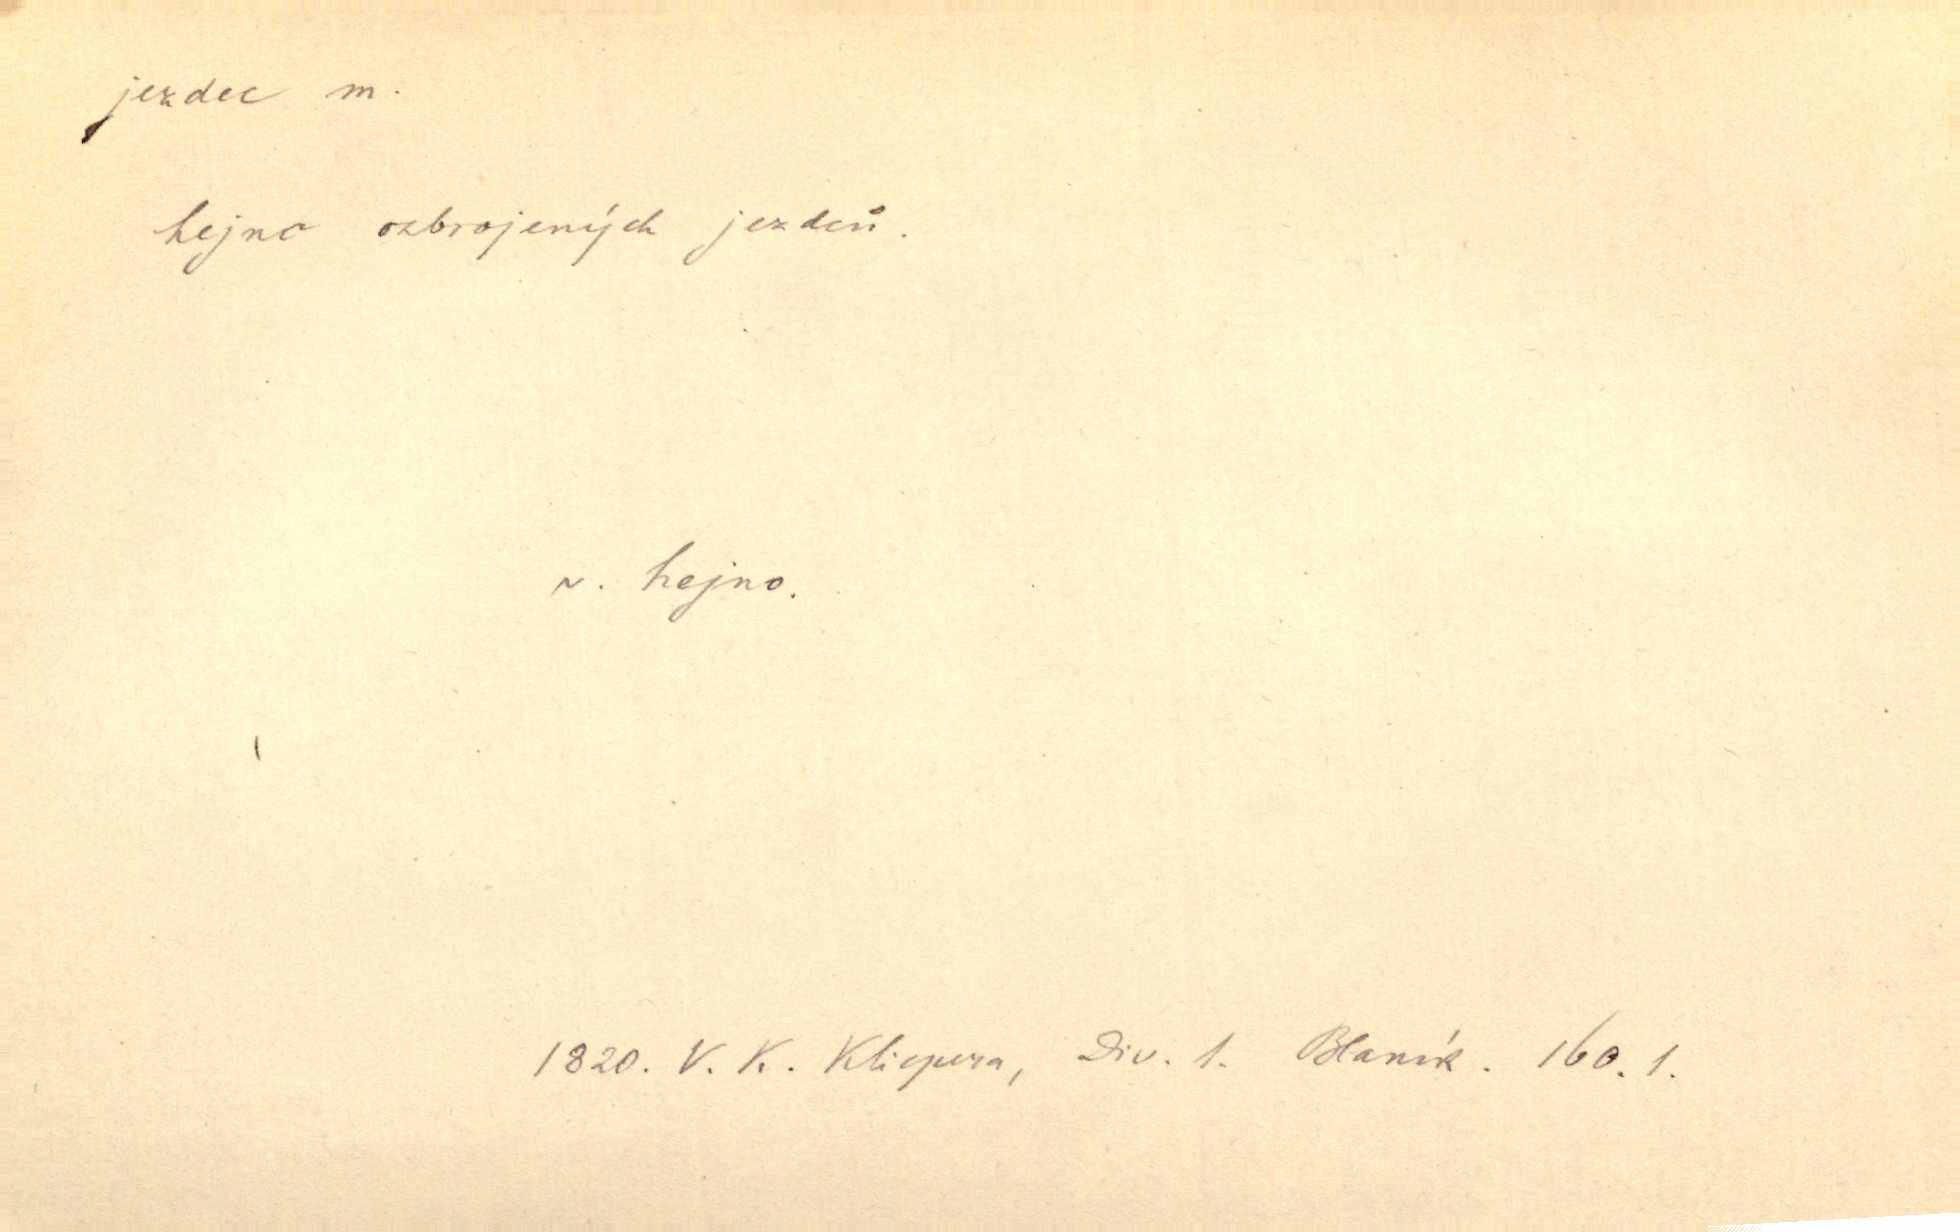 jezdec m.
hejno ozbrojených jezdců.
v. hejno.
1820. V. K. Klicpera, Div. 1. Blaník. 160. 1.